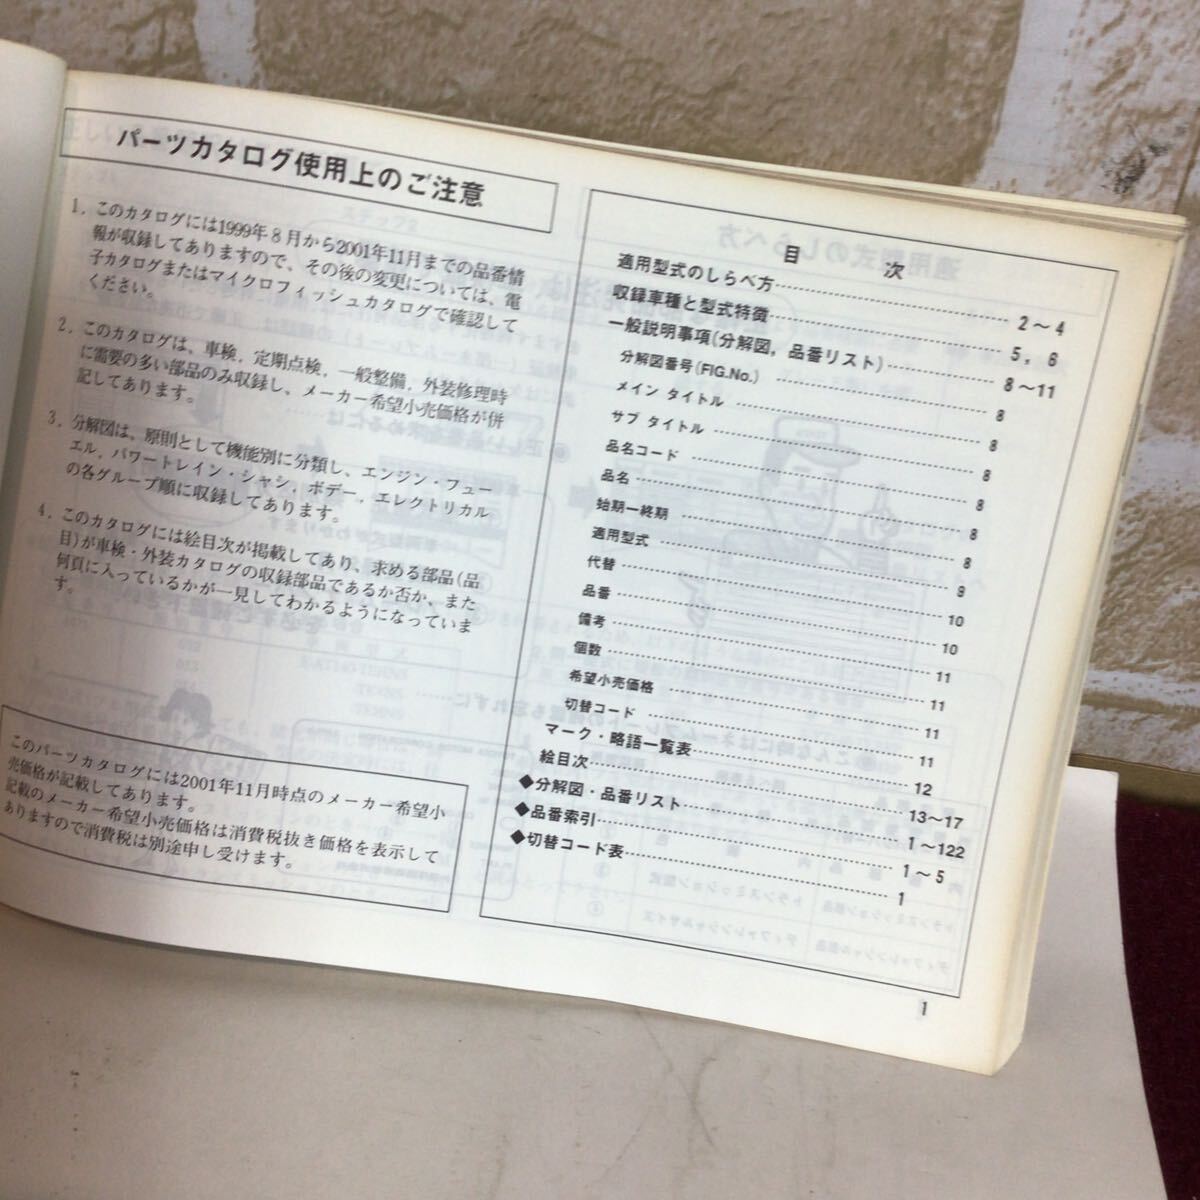 パーツカタログ使用上のご注意
1. このカタログには1999年8月から2001年11月までの品番情
報が収録してありますので、その後の変更については、電
子カタログまたはマイクロフィッシュカタログで確認して
ください。
2. このカタログは、車検, 定期点検, 一般整備, 外装修理時
に需要の多い部品のみ収録し、メーカー希望小売価格が併
記してあります。
3. 分解図は、原則として機能別に分類し、エンジン・フュー
エル, パワートレイン・シャシ, ボデー, エレクトリカル
の各グループ順に収録してあります。
4. このカタログには絵目次が掲載してあり、求める部品(品
目)が車検・外装カタログの収録部品であるか否か、また
何頁に入っているかが一見してわかるようになっていま
す。
このパーツカタログには2001年11月時点のメーカー希望小
売価格が記載してあります。
記載のメーカー希望小売価格は消費税抜き価格を表示して
ありますので消費税は別途申し受けます。
目 次
適用型式のしらべ方 2〜4
収録車種と型式特徴 5, 6
一般説明事項(分解図, 品番リスト) 8〜11
分解図番号(FIG.No.) 8
メイン タイトル 8
サブ タイトル 8
品名コード 8
品名 8
始期ー終期 8
適用型式 9
代替 10
品番 10
備考 11
個数 11
希望小売価格 11
切替コード 11
マーク・略語一覧表 12
絵目次 13〜17
◆分解図・品番リスト 1〜122
◆品番索引 1〜5
◆切替コード表 1
1